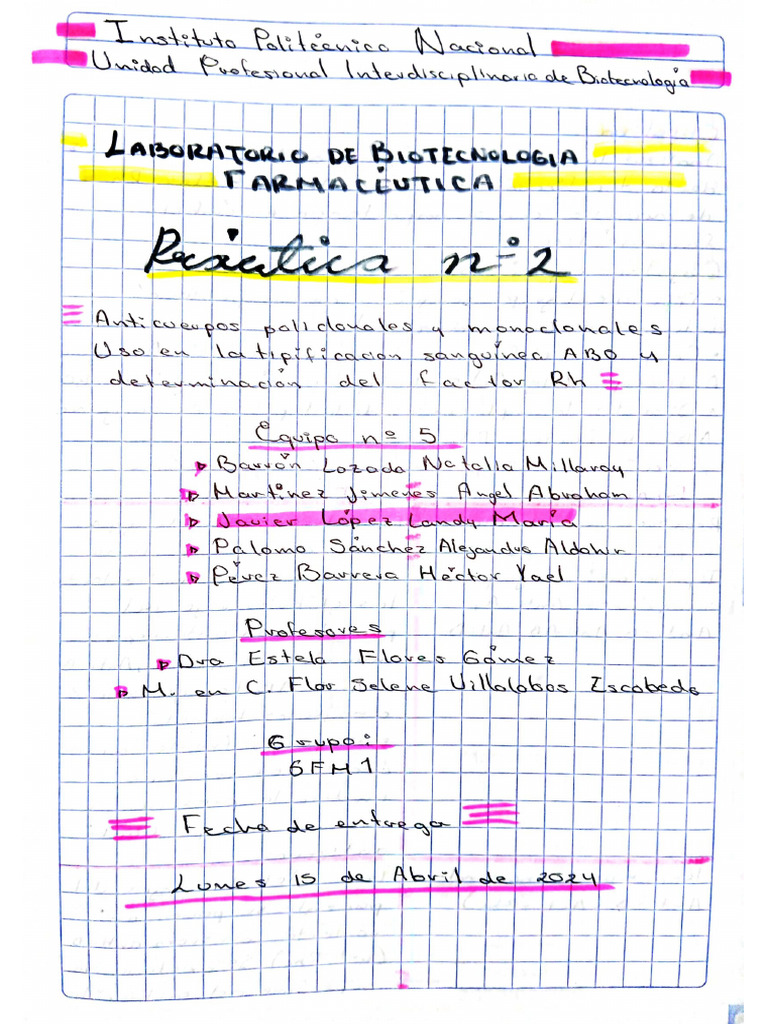 Instituto Politécnico Nacional
Unidad Profesional Interdisciplinaria de Biotecnología
LABORATORIO DE BIOTECNOLOGIA
FARMACÉUTICA
Práctica nº 2
Anticuerpos policlonales y monoclonales
Uso en la tipificación sanguínea ABO y
determinación del factor Rh
Equipo nº 5
Barrón Lozada Natalia Millaray
Martínez Jimenes Angel Abraham
Javier López Landy María
Palomo Sánchez Alejandro Aldahir
Pérez Barrera Héctor Yael
Profesores
Dra Estela Flores Gómez
M. en C. Flor Selene Villalobos Escobedo
Grupo:
6FM1
Fecha de entrega
Lunes 15 de Abril de 2024